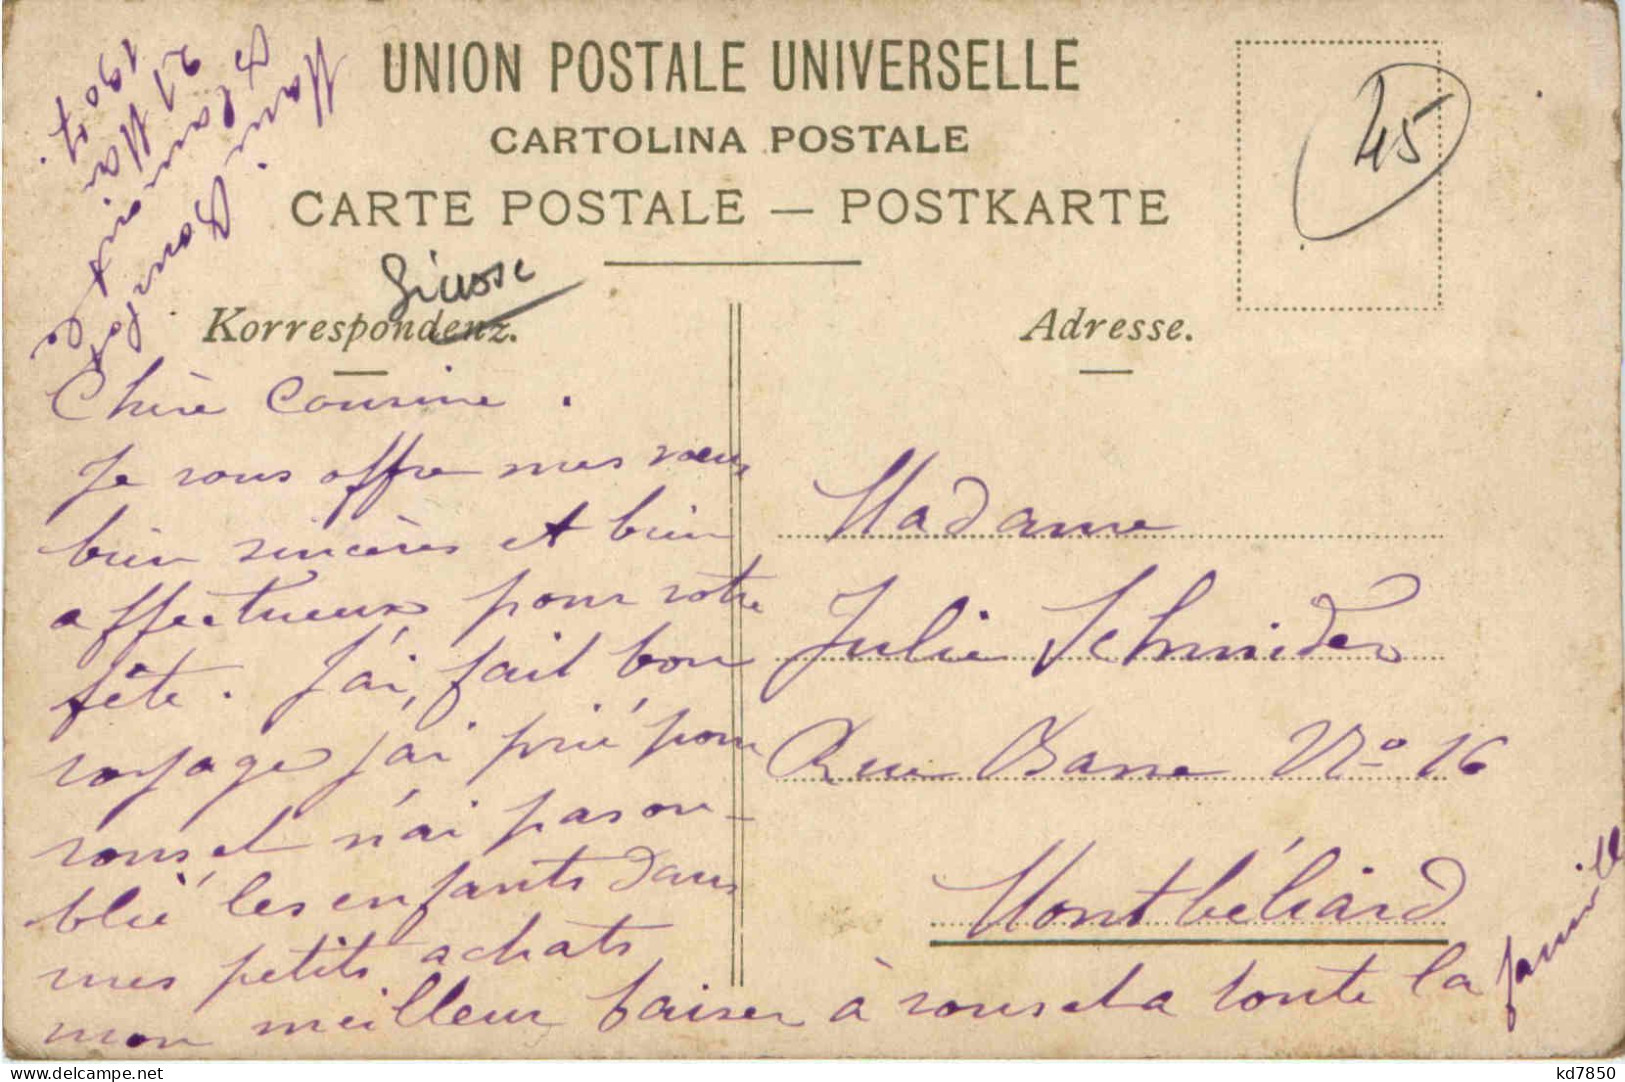 UNION POSTALE UNIVERSELLE
CARTOLINA POSTALE
CARTE POSTALE — POSTKARTE
45
Korrespondenz.
Adresse.
21 Mai
1907.
Chère Cousine.
Je vous offre mes vœux
bien sincères et bien
affectueux pour votre
fête. J'ai fait bon
voyage j'ai prié pour
vous et n'ai pas ou-
blié les enfants dans
mes petits achats
mon meilleur baiser à vous et à toute la famille
Madame
Julie Schneider
Rue Basse No 16
Montbéliard
kd7850